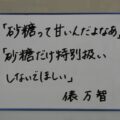 「砂糖って甘いんだよなあ」
「砂糖だけ特別扱い
しないでほしい」
俵万智